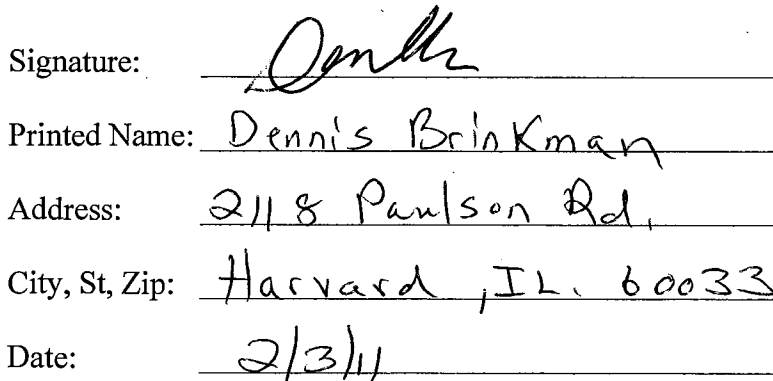 Signature:
Printed Name: Dennis Brinkman
Address: 2118 Paulson Rd.
City, St, Zip: Harvard, IL. 60033
Date: 2/3/11